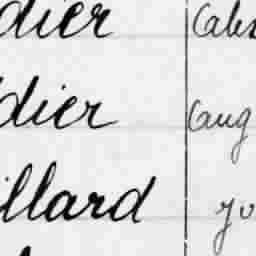 dier Cales
dier Aug
illard Jo